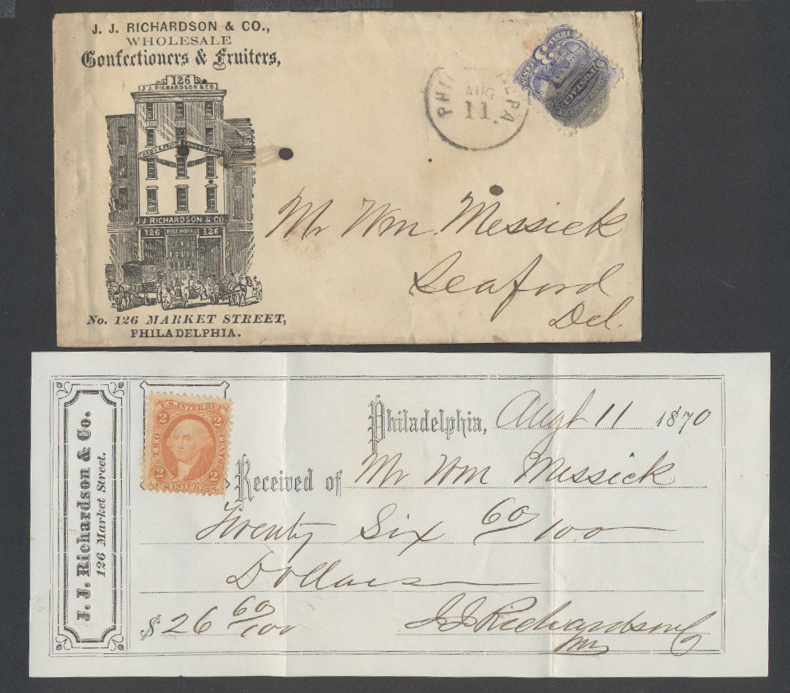 J. J. RICHARDSON & CO.,
WHOLESALE
Confectioners & Fruiters,
126
J. J. RICHARDSON & CO.
J. J. RICHARDSON & CO.
126 126
No. 126 MARKET STREET,
PHILADELPHIA.
AUG
11
PA
Mr Wm. Messick
Seaford
Del.
J. J. Richardson & Co.
126 Market Street.
U.S. INTER REV.
2 2
TWO CENTS
2 2
Philadelphia, Augt 11 1870
Received of Mr Wm Messick
Twenty Six 60/100
Dollars
$26 60/100 J J Richardson Co